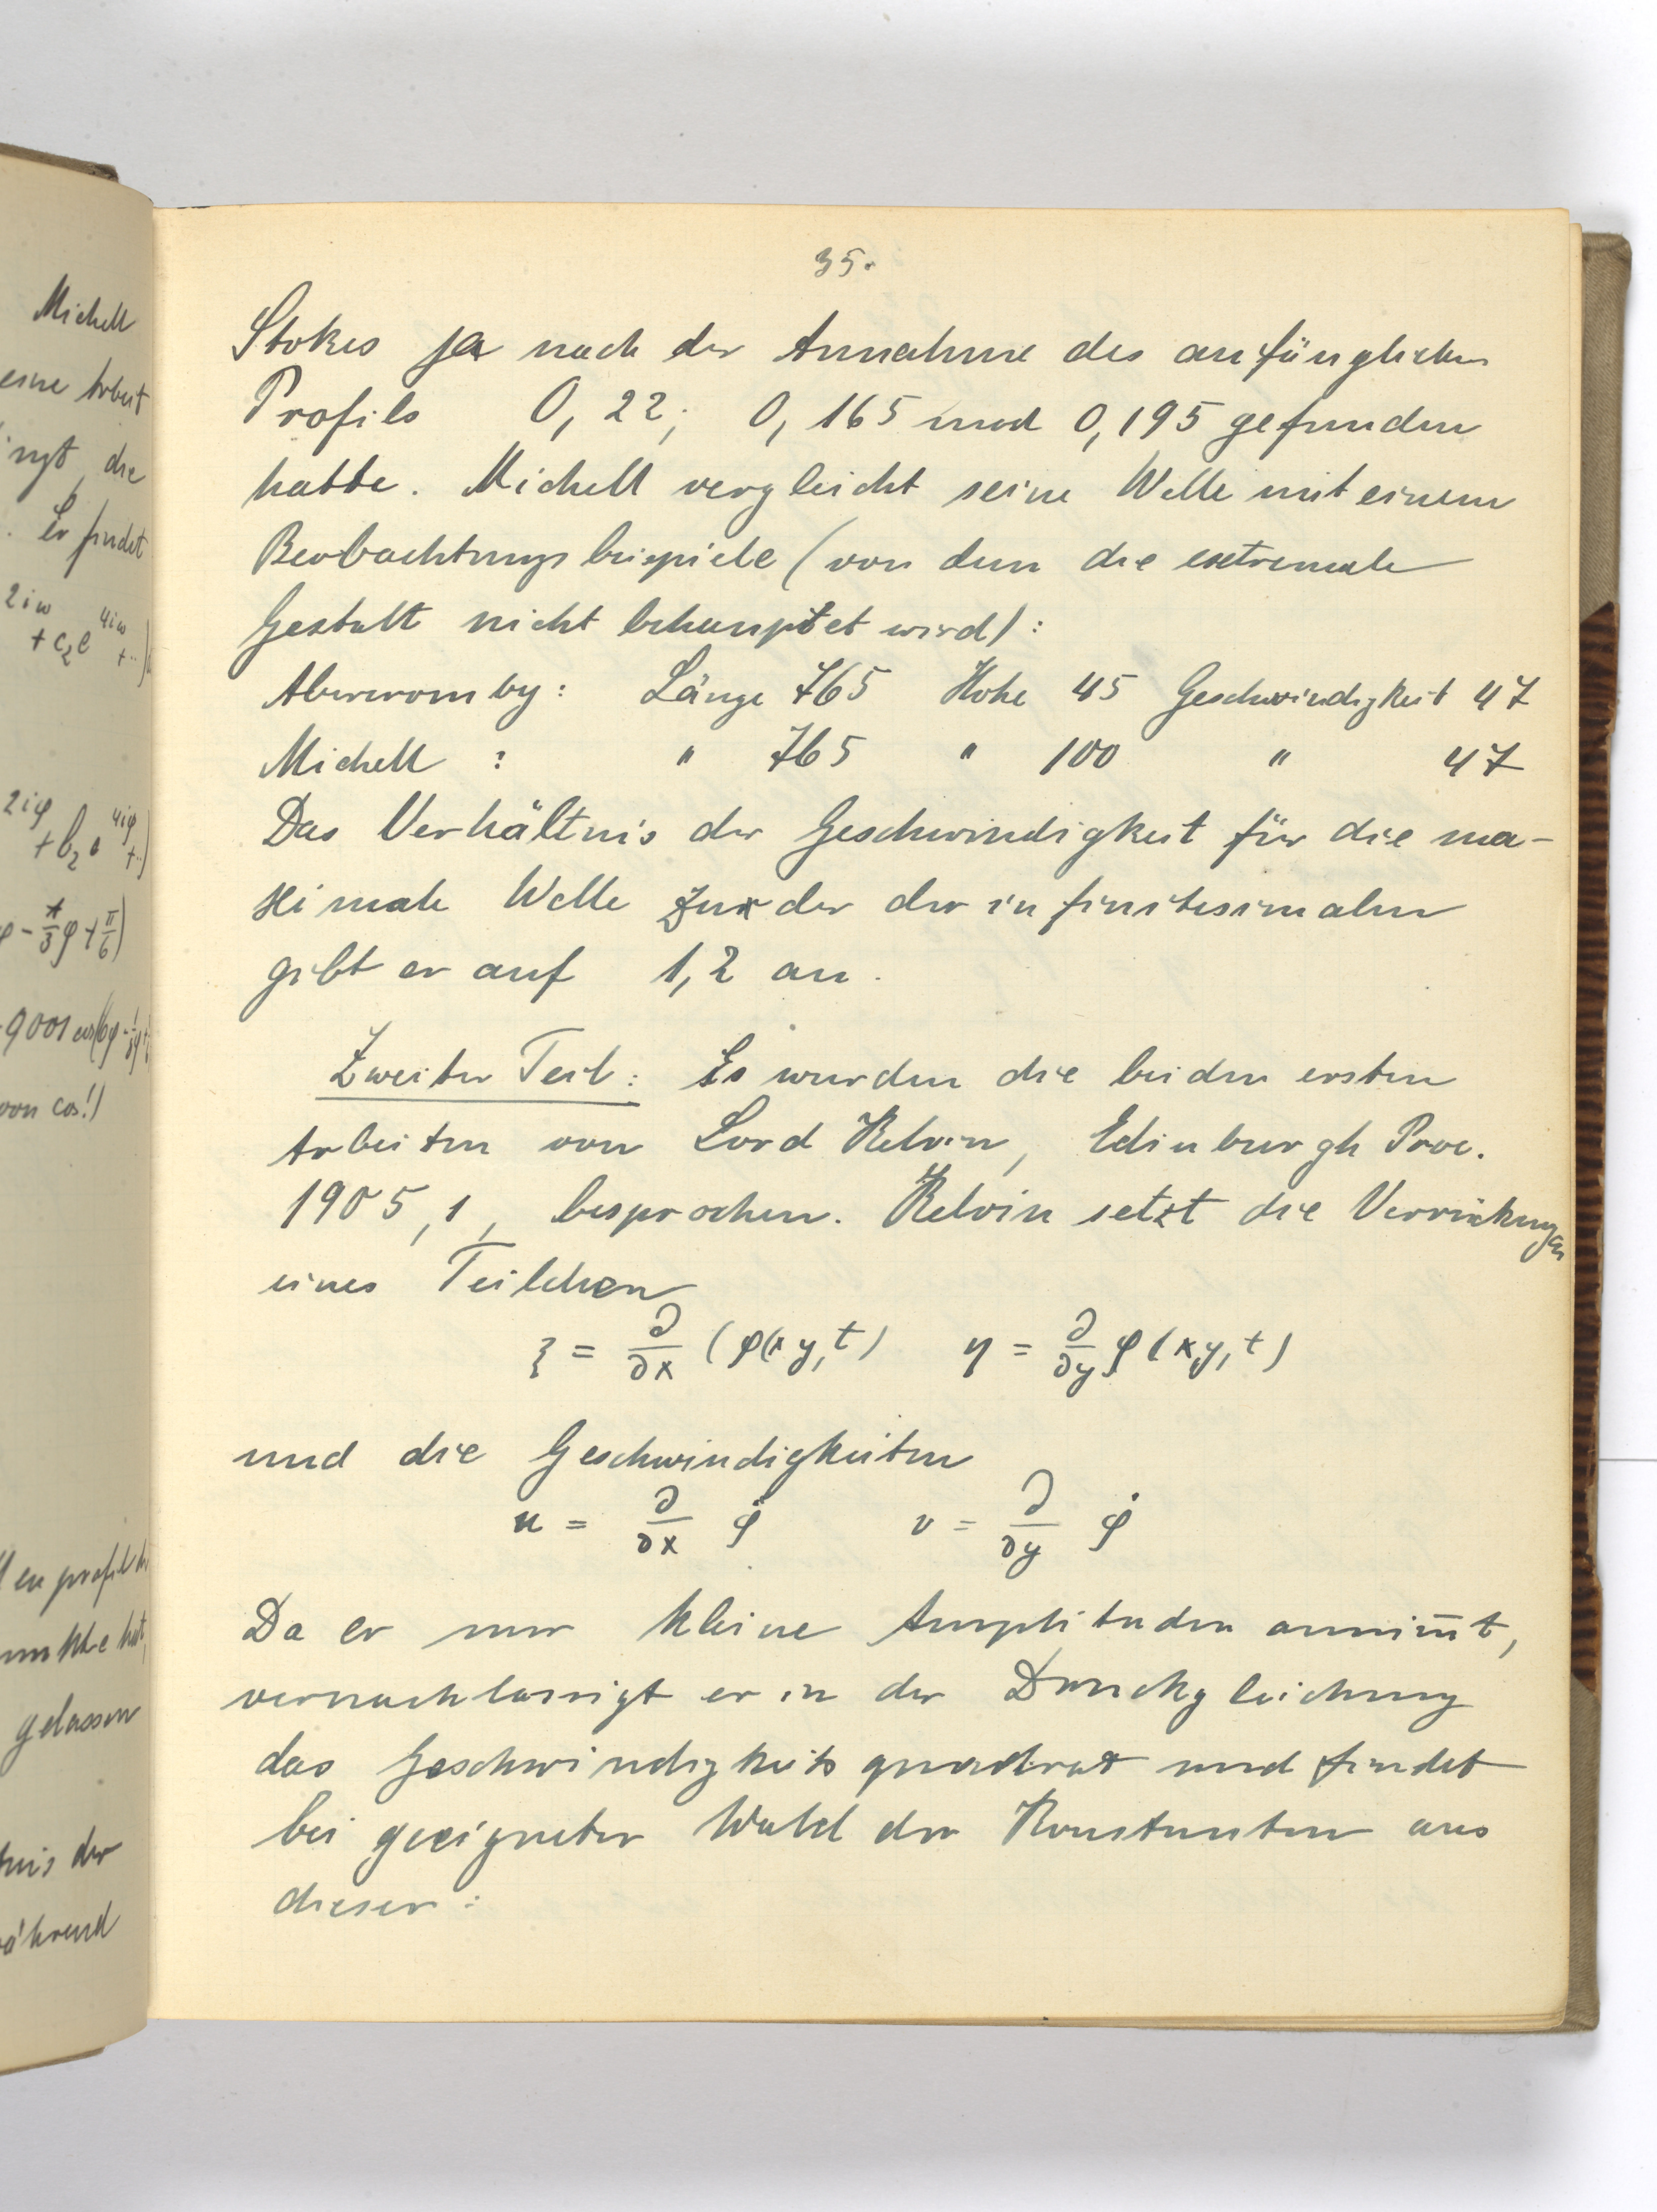 Michell
eine Arbeit
ingt, die
. Er findet
2iω 4iω
+ c₂e + ..)
2iφ 4iφ
+ b₂e + ..)
φ - π/3 φ + π/6)
von cos!)
gelassen
tnis der
während
35.
Stokes je nach der Annahme des anfänglichen
Profils 0,22; 0,165 und 0,195 gefunden
hatte. Michell vergleicht seine Welle mit einem
Beobachtungsbeispiele (von dem die extremale
Gestalt nicht behauptet wird):
Abercromby: Länge 765 Höhe 45 Geschwindigkeit 47
Michell : " 765 " 100 " 47
Das Verhältnis der Geschwindigkeit für die ma-
ximale Welle zur der der infinitesimalen
gibt er auf 1,2 an.
Zweiter Teil: Es wurden die beiden ersten
Arbeiten von Lord Kelvin, Edinburgh Proc.
1905, 1, besprochen. Kelvin setzt die Verrückungen
eines Teilchen
ξ = ∂/∂x (φ(x y, t) η = ∂/∂y φ(x, y, t)
und die Geschwindigkeiten
u = ∂/∂x φ̇ v = ∂/∂y φ̇
Da er nur kleine Amplituden annim̄t,
vernachlässigt er in der Druckgleichung
das Geschwindigkeitsquadrat und findet
bei geeigneter Wahl der Konstanten aus
dieser: